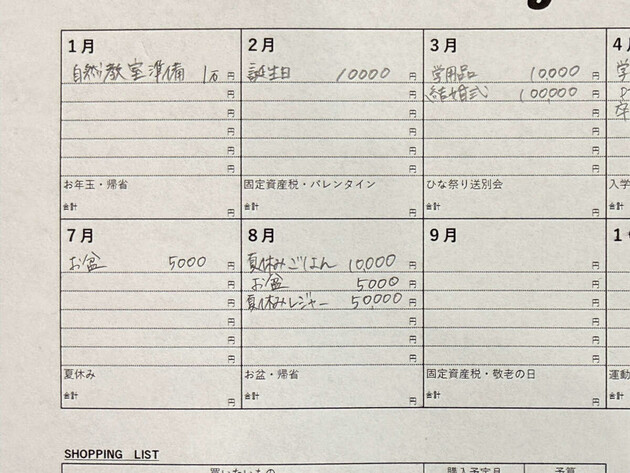 1月
自然教室準備 1万円
円
円
円
円
円
お年玉・帰省
合計 円
2月
誕生日 10000円
円
円
円
円
円
固定資産税・バレンタイン
合計 円
3月
学用品 10,000円
結婚式 100,000円
円
円
円
円
ひな祭り送別会
合計 円
4月
学
卒
入学
合計
7月
お盆 5000円
円
円
円
円
円
夏休み
合計 円
8月
夏休みごはん 10,000円
お盆 5000円
夏休みレジャー 50,000円
円
円
円
お盆・帰省
合計 円
9月
円
円
円
円
円
円
固定資産税・敬老の日
合計 円
1
運動
合計
SHOPPING LIST
買いたいもの 購入予定月 予算